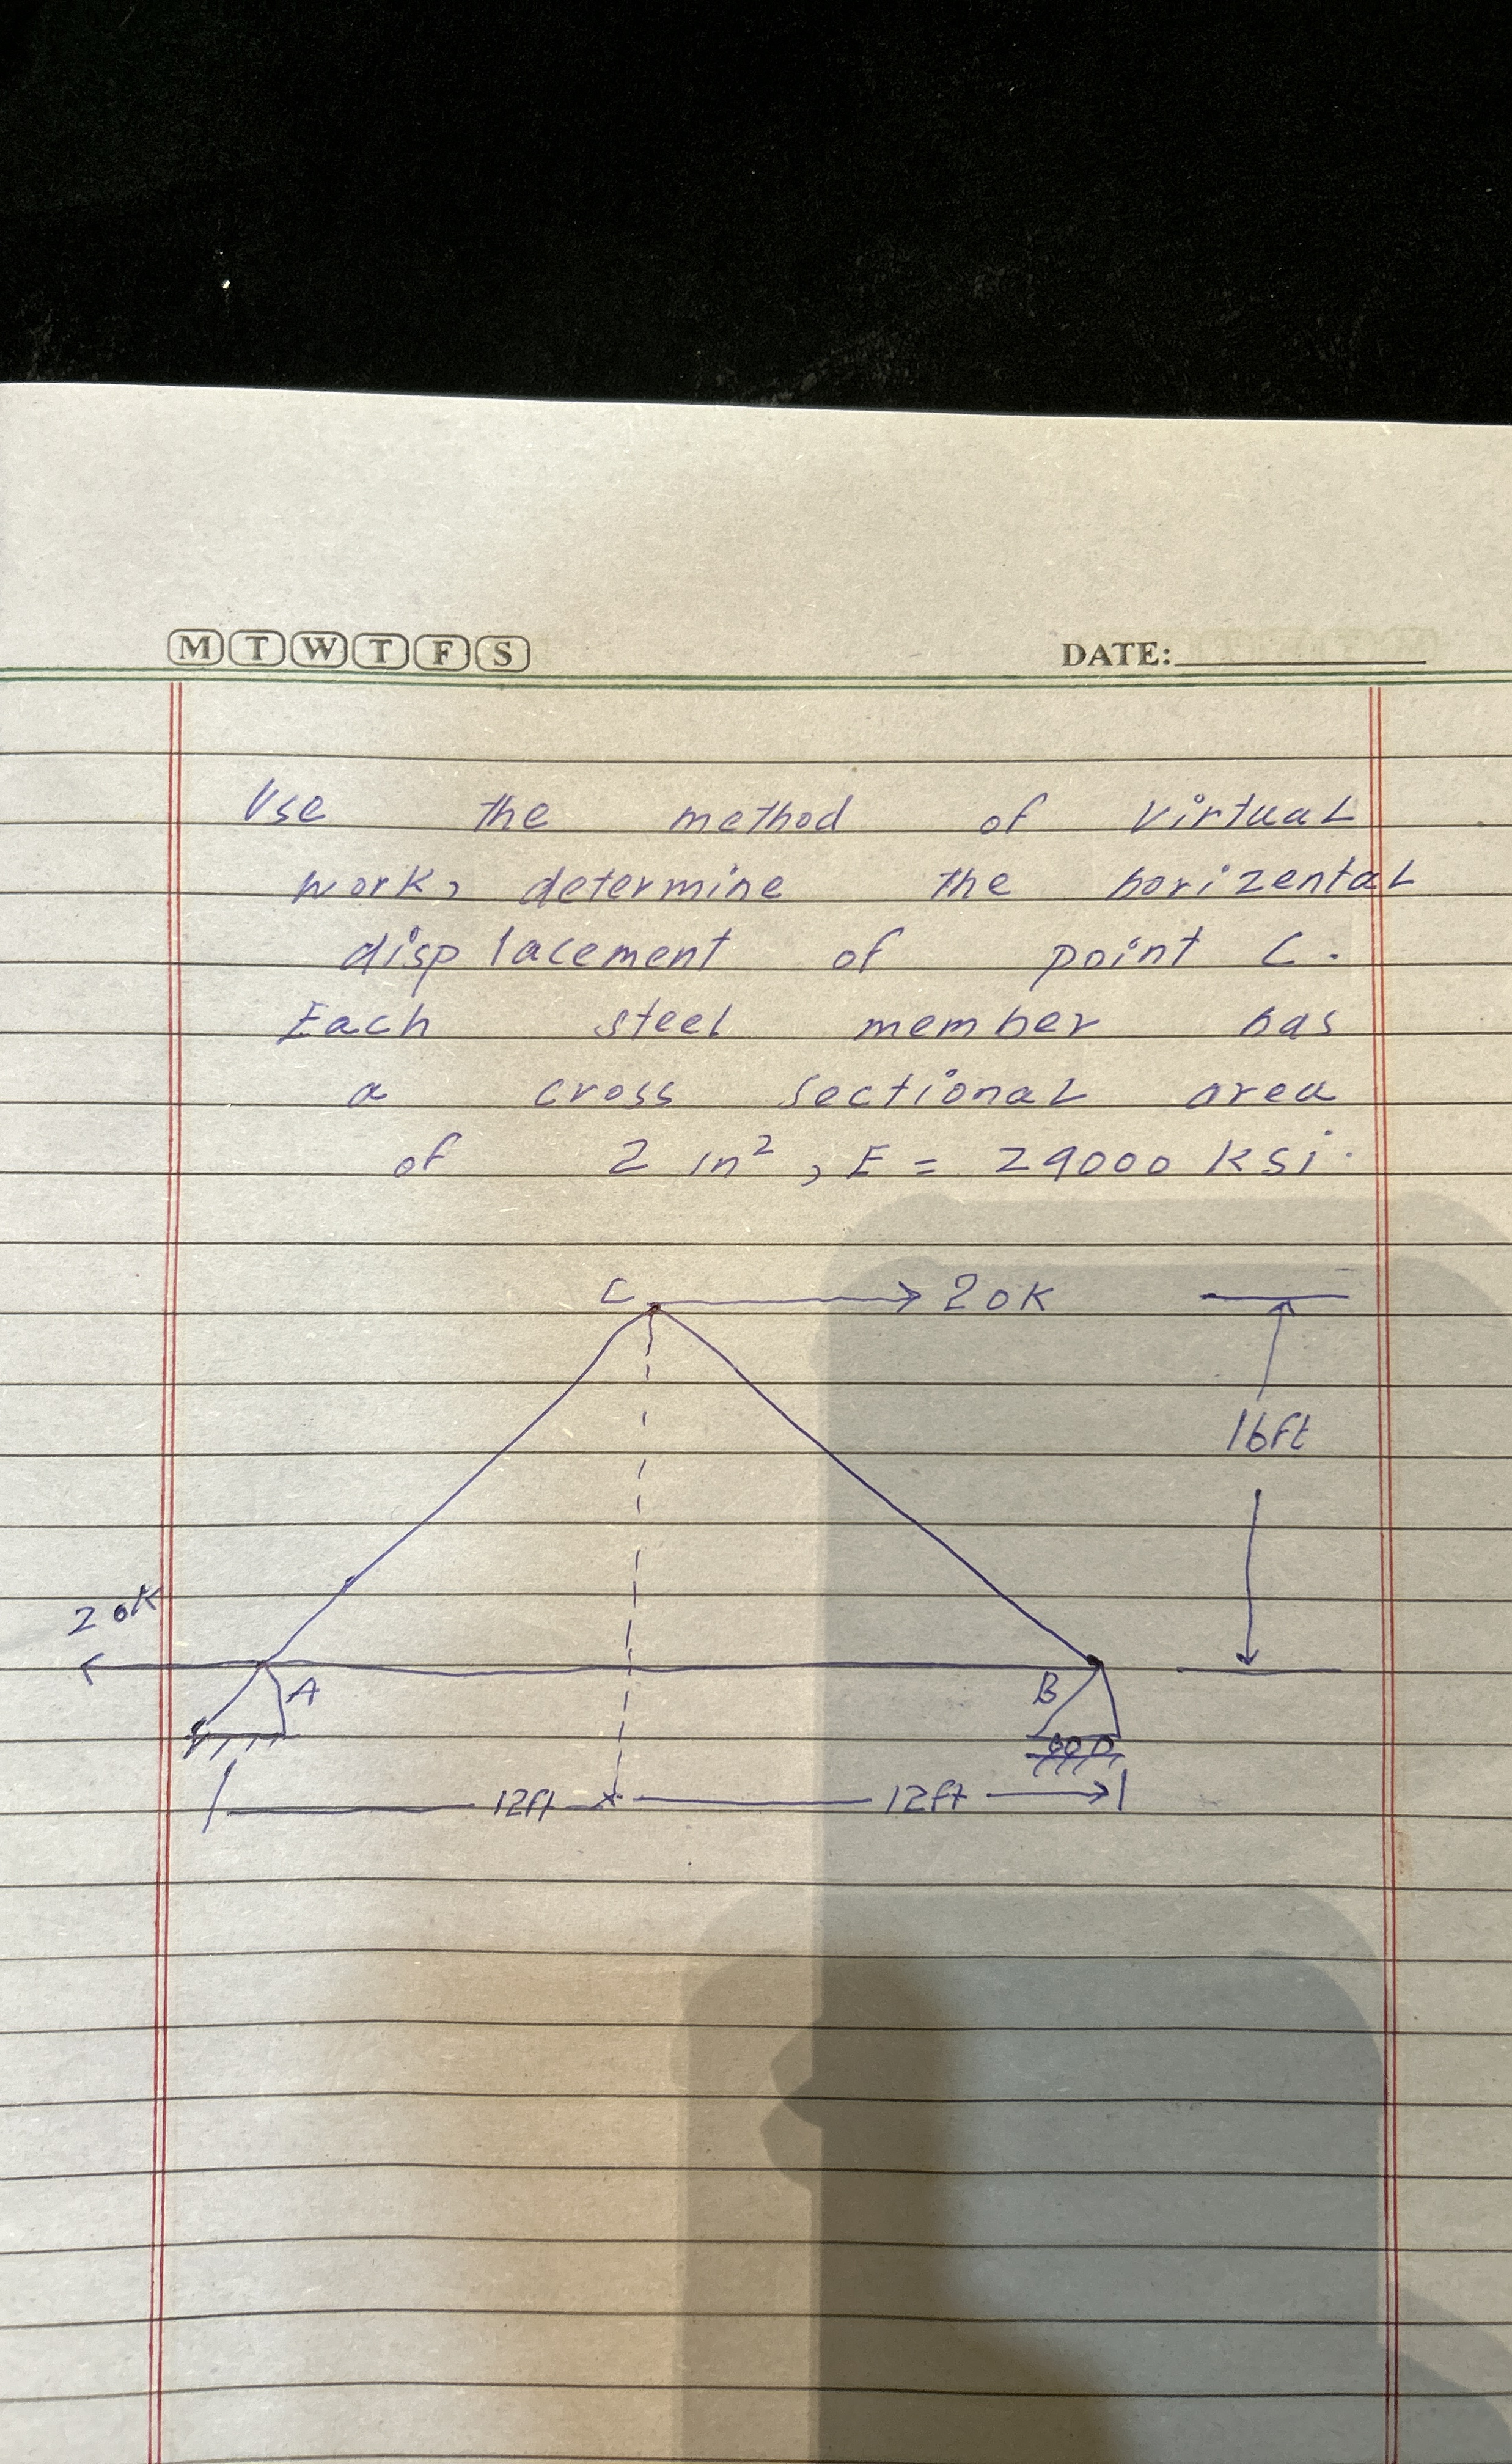 M T W T F S DATE:
Use the method of virtual
work, determine the horizental
displacement of point C.
Each steel member has
a cross sectional area
of 2 in², E = 29000 ksi.
C 20K
16ft
20K
A B
12ft 12ft